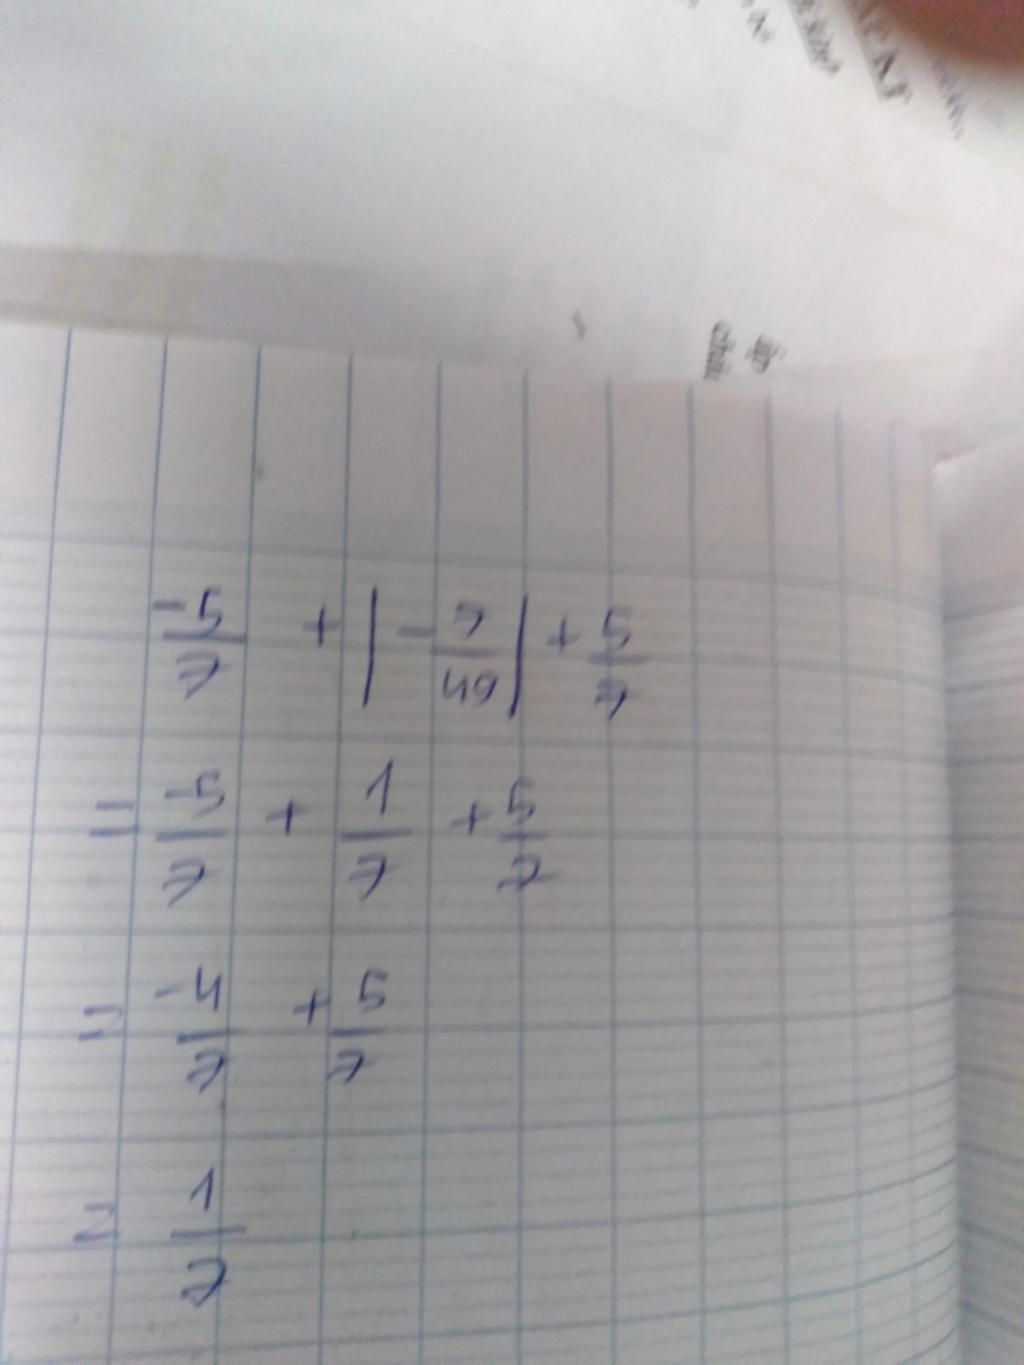 -5/7 + |-7/49| + 5/7
= -5/7 + 1/7 + 5/7
= -4/7 + 5/7
= 1/7